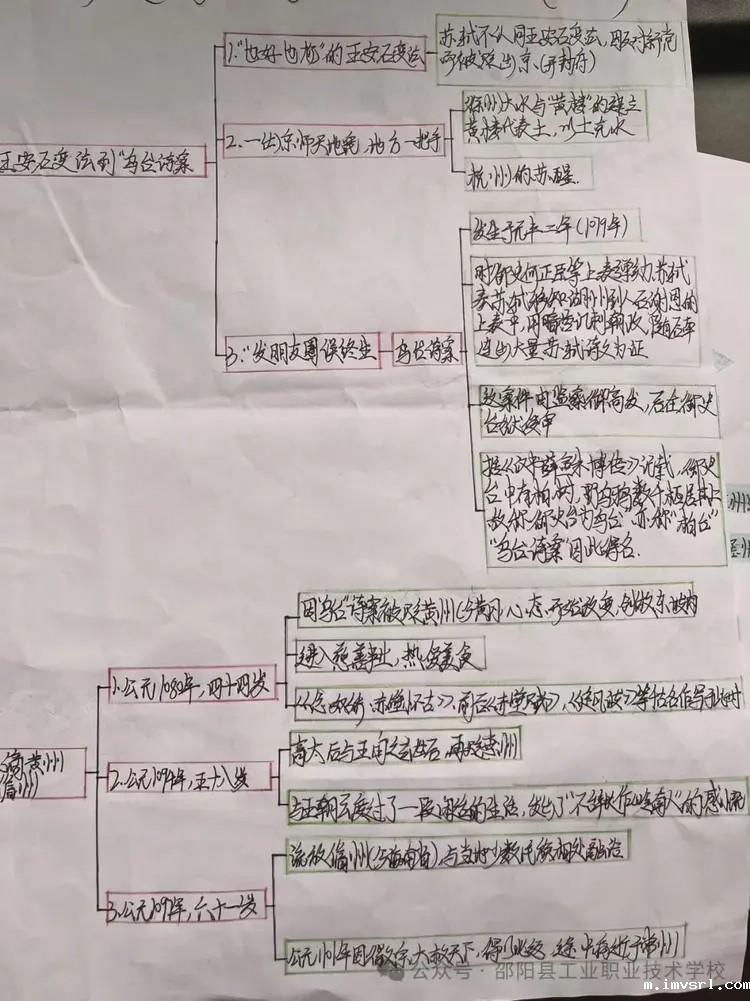 1."也好也坏"的王安石变法
苏轼不认同王安石变法,因反对新党
而被贬出京(开封府)
王安石变法到"乌台诗案
2.一出京师天地宽,地方一把手
徐州大水与"黄楼"的建立
黄楼代表土,以土克水
杭州的苏醒
3."发朋友圈误终生
乌台诗案
发生于元丰二年(1079年)
时御史何正臣等上表弹劾苏轼
奏苏轼移知湖州到任后谢恩的
上表中,用暗语讥刺朝政,随后牵
连出大量苏轼诗文为证
该案件由监察御史告发,后在御史
台狱受审
据《汉书薛宣朱博传》记载,御史
台中有柏树,野乌鸦数千栖居其上
故称御史台为"乌台"亦称"柏台"
"乌台诗案"因此得名.
州
1.公元1080年,四十四岁
因"乌台"诗案被贬黄州(今黄冈)心态开始改变,
进入慈善事业,热爱美食
《念奴娇·赤壁怀古》、前后《赤壁赋》,《定风波》等
黄州
儋州)
2.公元1094年,五十八岁
高太后与王闰之去世后,再贬惠州
与王朝云度过了一段闲适的生活,发出了"不辞长作岭南人"的感慨
3.公元1097年,六十一岁
流放儋州(今海南省),与当地少数民族相处融洽
公元1101年因徽宗大赦天下,得以北返,途中病逝于常州
公众号·邵阳县工业职业技术学校
m.imvsrl.com